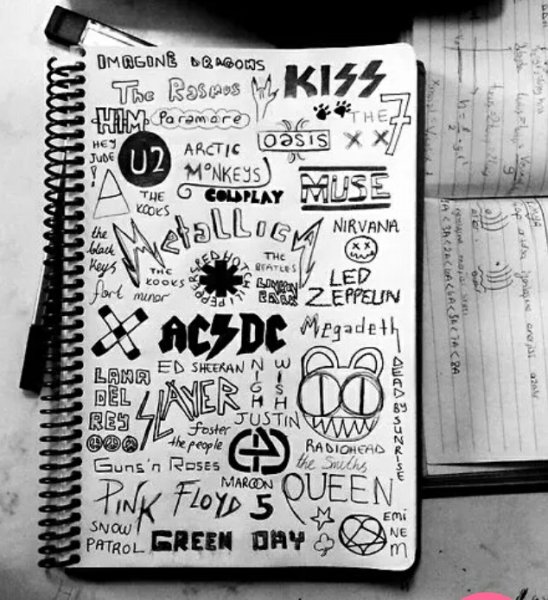 IMAGINE DRAGONS
The Rasmus
KISS
HIM
Paramore
THE
7
X X
HEY
JUDE
!
U2
ARCTIC
MONKEYS
OASIS
COLDPLAY
MUSE
A
THE
KOOKS
Metallica
NIRVANA
X X
the
black
keys
THE
KOOKS
RED HOT
CHILI PEPPERS
THE
BEATLES
LINKIN
PARK
LED
ZEPPELIN
fort minor
AC DC
Megadeth
ED SHEERAN
NIGHT
WISH
LANA
DEL
REY
SLAYER
JUSTIN
foster
the people
DEAD BY SUNRISE
RADIOHEAD
Guns'n Roses
the Smiths
PINK FLOYD
MAROON
5
QUEEN
SNOW
PATROL
GREEN DAY
EMI
NE
M